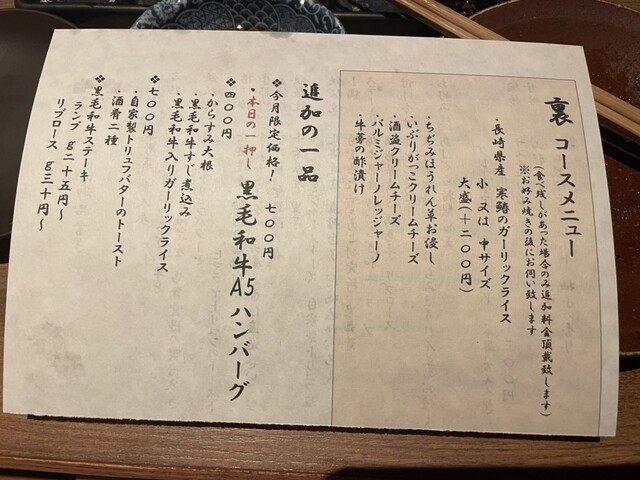 裏 コースメニュー
(食べ残しがあった場合のみ追加料金頂戴致します)
※お好み焼きの後にお伺い致します
・長崎県産 寒鰆のガーリックライス
小 又は 中サイズ
大盛(+二〇〇円)
・ちぢみほうれん草お浸し
・いぶりがっこクリームチーズ
・酒盗クリームチーズ
・パルミジャーノレッジャーノ
・牛蒡の酢漬け
追加の一品
※今月限定価格! 七〇〇円
・本日の一押し 黒毛和牛A5ハンバーグ
※四〇〇円
・からすみ大根
・黒毛和牛すじ煮込み
・黒毛和牛入りガーリックライス
※七〇〇円
・自家製トリュフバターのトースト
・酒肴二種
※黒毛和牛ステーキ
ランプ g二十五円〜
リブロース g三十円〜